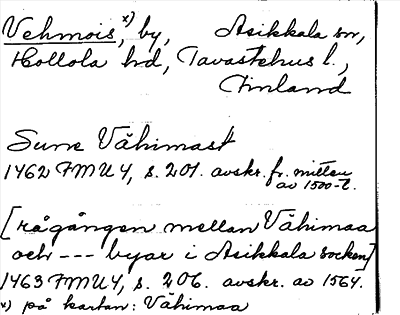 Vehmois,ˣ⁾ by, Asikkala sn,
Hollola hd, Tavastehus l.,
Finland
Sune Vähimast
1462 FMU 4, s. 201. avskr. fr. mitten
av 1500-t.
[rågången mellan Vähimaa
och --- byar i Asikkala socken]
1463 FMU 4, s. 206. avskr. av 1564.
x) på kartan: Vähimaa